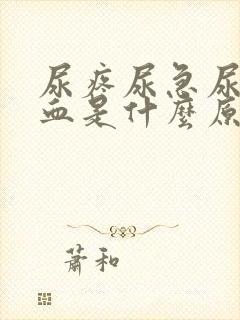 尿疼尿急尿
血是什麼原
蕭和